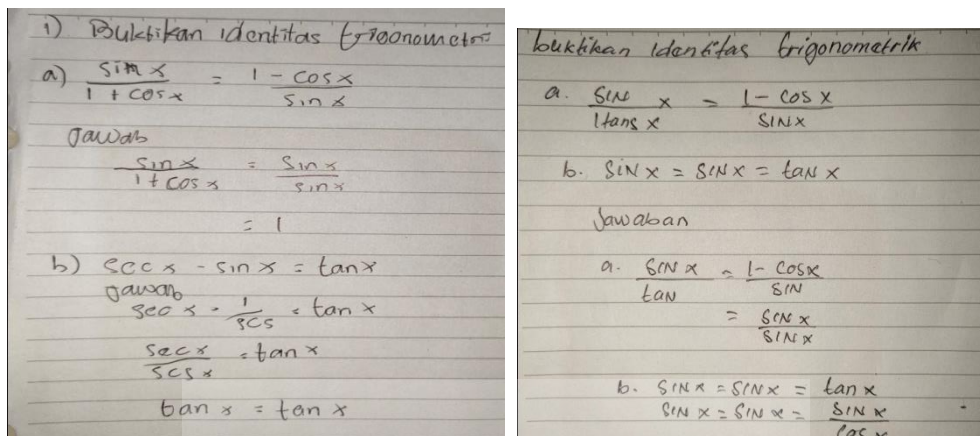 1) Buktikan identitas trigonometri
a) sin x / 1 + cos x = 1 - cos x / sin x
Jawab
sin x / 1 + cos x = sin x / sin x
= 1
b) sec x - sin x = tan x
Jawab
sec x . 1 / scs = tan x
sec x / scs x = tan x
tan x = tan x
buktikan identitas trigonometrik
a. SIN x / 1tans x = 1 - cos x / SIN x
b. SIN x = SIN x = tan x
Jawaban
a. SIN x / tan = 1 - cos x / SIN
= SIN x / SIN x
b. SIN x = SIN x = tan x
SIN x = SIN x = SIN x / cos x